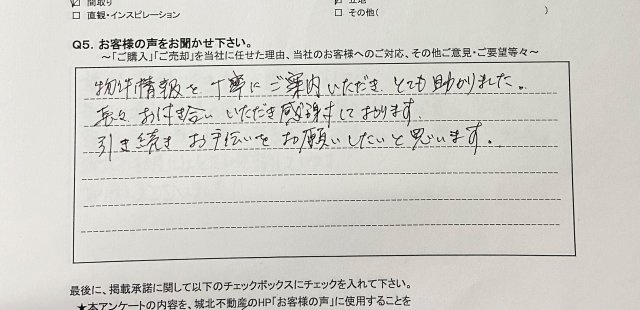 間取り
立地
□ 直観・インスピレーション
□ その他( )
Q5. お客様の声をお聞かせ下さい。
～「ご購入」「ご売却」を当社に任せた理由、当社のお客様へのご対応、その他ご意見・ご要望等々～
物件情報を丁寧にご案内いただき とても助かりました。
長々お付き合いいただき感謝しております。
引き続きお手伝いをお願いしたいと思います。
最後に、掲載承諾に関して以下のチェックボックスにチェックを入れて下さい。
★本アンケートの内容を、城北不動産のHP「お客様の声」に使用することを